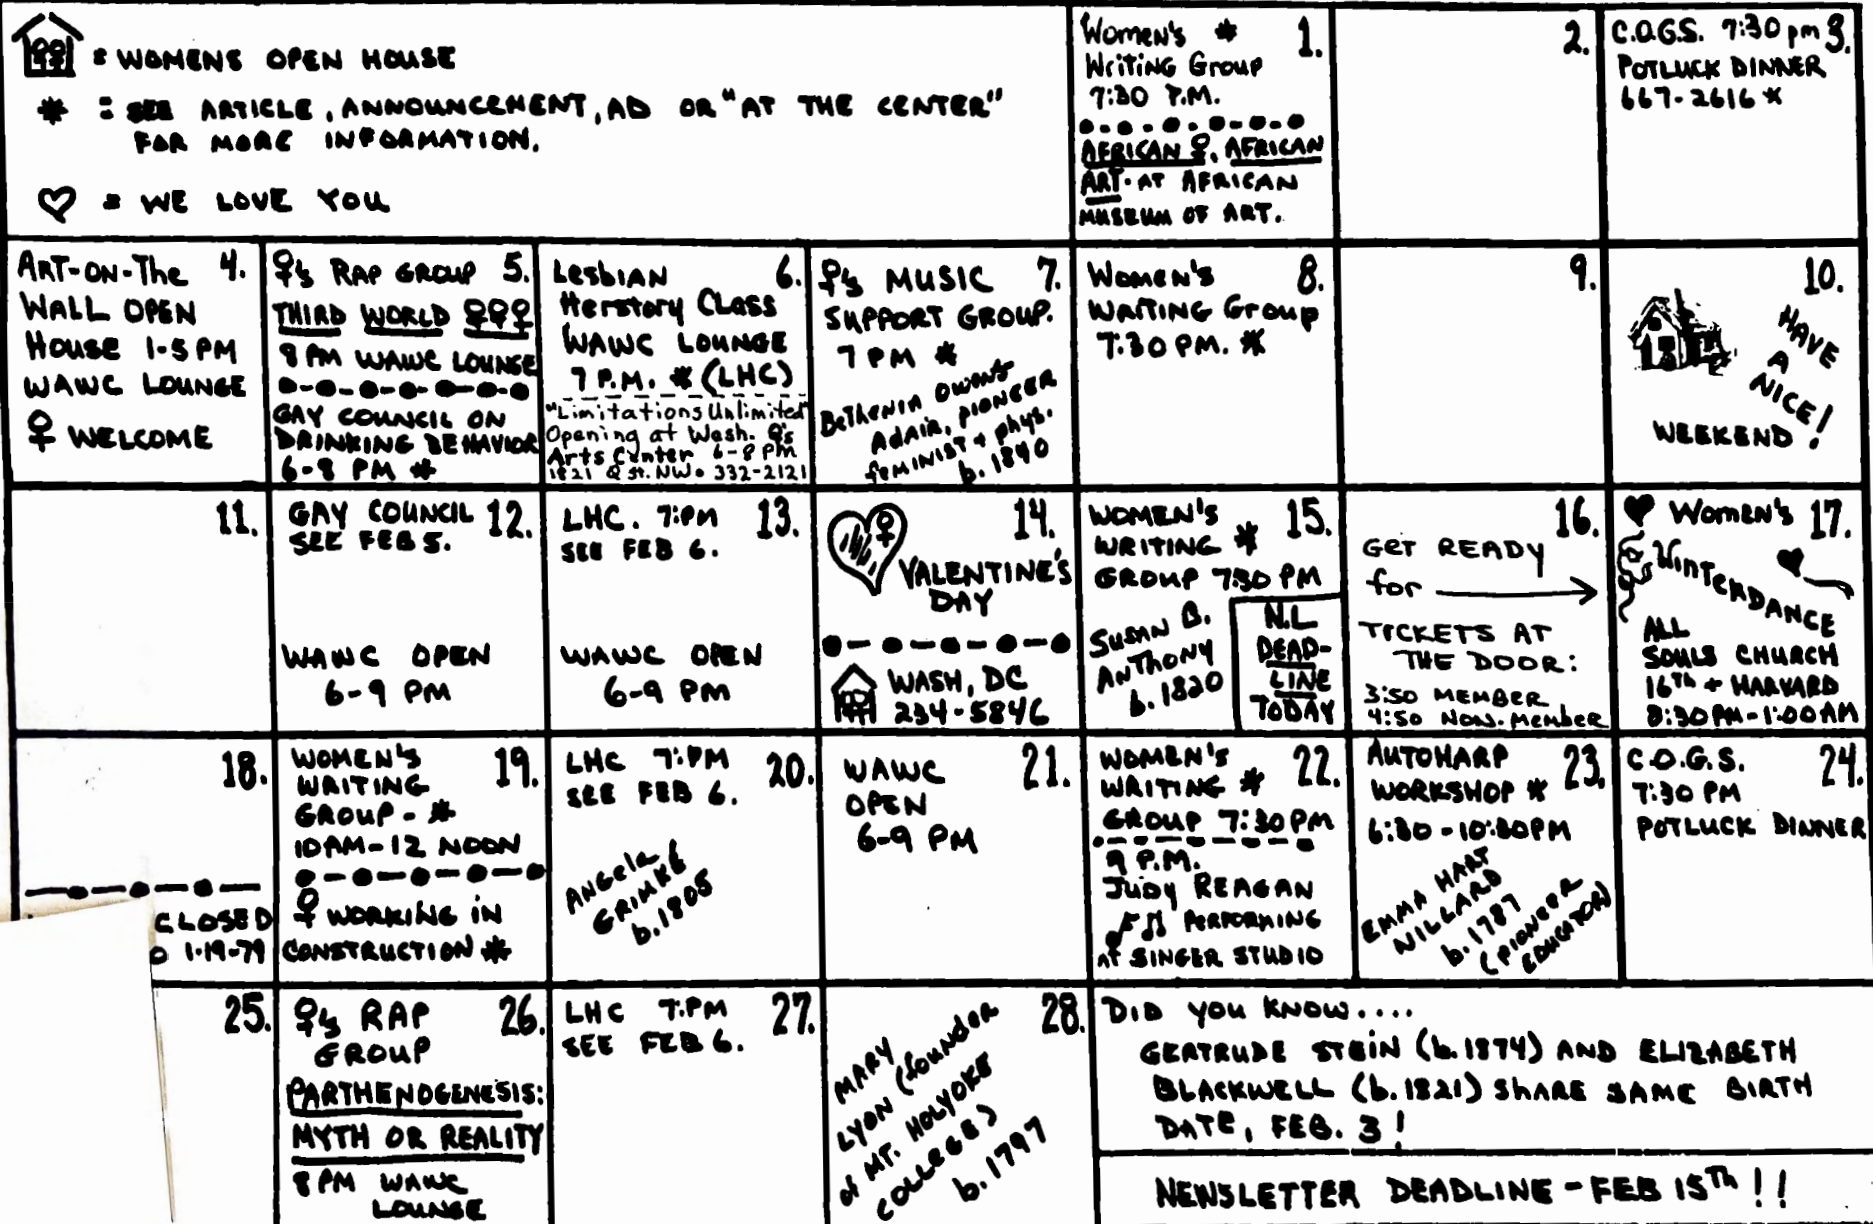 = WOMENS OPEN HOUSE
* = SEE ARTICLE, ANNOUNCEMENT, AD OR "AT THE CENTER"
FOR MORE INFORMATION.
♡ = WE LOVE YOU
Women's * 1.
Writing Group
7:30 P.M.
AFRICAN ♀, AFRICAN
ART. AT AFRICAN
MUSEUM OF ART.
2.
C.O.G.S. 7:30 pm 3.
POTLUCK DINNER
667-2616 *
ART-ON-The 4.
WALL OPEN
House 1-5 PM
WAWC LOUNGE
♀ WELCOME
♀'s RAP GROUP 5.
THIRD WORLD ♀♀♀
8 PM WAWC LOUNGE
GAY COUNCIL ON
DRINKING BEHAVIOR
6-8 PM *
Lesbian 6.
Herstory Class
WAWC LOUNGE
7 P.M. * (LHC)
"Limitations Unlimited"
Opening at Wash. ♀'s
Arts Center 6-8 PM
1821 Q St. NW. 332-2121
♀'s MUSIC 7.
SUPPORT GROUP.
7 PM *
BeTHENIA OWENS
ADAIR, PIONEER
feMINIST + phys.
b. 1840
Women's 8.
WRITING Group
7:30 PM. *
9.
10.
HAVE
A
NICE!
WEEKEND!
11.
GAY COUNCIL 12.
SEE FEB 5.
WAWC OPEN
6-9 PM
LHC. 7:PM 13.
SEE FEB 6.
WAWC OPEN
6-9 PM
14.
VALENTINE'S
DAY
WASH, DC
234-5846
WOMEN'S 15.
WRITING *
GROUP 7:30 PM
SUSAN B.
ANTHONY
b. 1820
N.L
DEAD-
LINE
TODAY
16.
GET READY
for
TICKETS AT
THE DOOR:
3:50 MEMBER
4:50 NON-Member
Women's 17.
WINTERDANCE
ALL
SOULS CHURCH
16Th + HARVARD
8:30 PM-1:00 AM
18.
CLOSED
1-19-79
WOMEN'S 19.
WRITING
GROUP - *
10AM-12 NOON
♀ WORKING IN
CONSTRUCTION *
LHC 7:PM 20.
SEE FEB 6.
ANGELA
GRIMKE
b. 1805
WAWC 21.
OPEN
6-9 PM
WOMEN'S 22.
WRITING *
GROUP 7:30 PM
9 P.M.
Judy REAGAN
♪♫ PERFORMING
AT SINGER STUDIO
AUTOHARP 23.
WORKSHOP *
6:30-10:30PM
EMMA HART
WILLARD
b. 1787
(PIONEER
EDUCATOR)
C.O.G.S. 24.
7:30 PM
POTLUCK DINNER
25.
♀'s RAP 26.
GROUP
PARTHENOGENESIS:
MYTH OR REALITY
8 PM WAWC
LOUNGE
LHC 7:PM 27.
SEE FEB 6.
28.
MARY
LYON (founder
of MT. HOLYOKE
COLLEGE)
b. 1797
DID YOU KNOW....
GERTRUDE STEIN (b. 1874) AND ELIZABETH
BLACKWELL (b. 1821) SHARE SAME BIRTH
DATE, FEB. 3!
NEWSLETTER DEADLINE - FEB 15Th!!